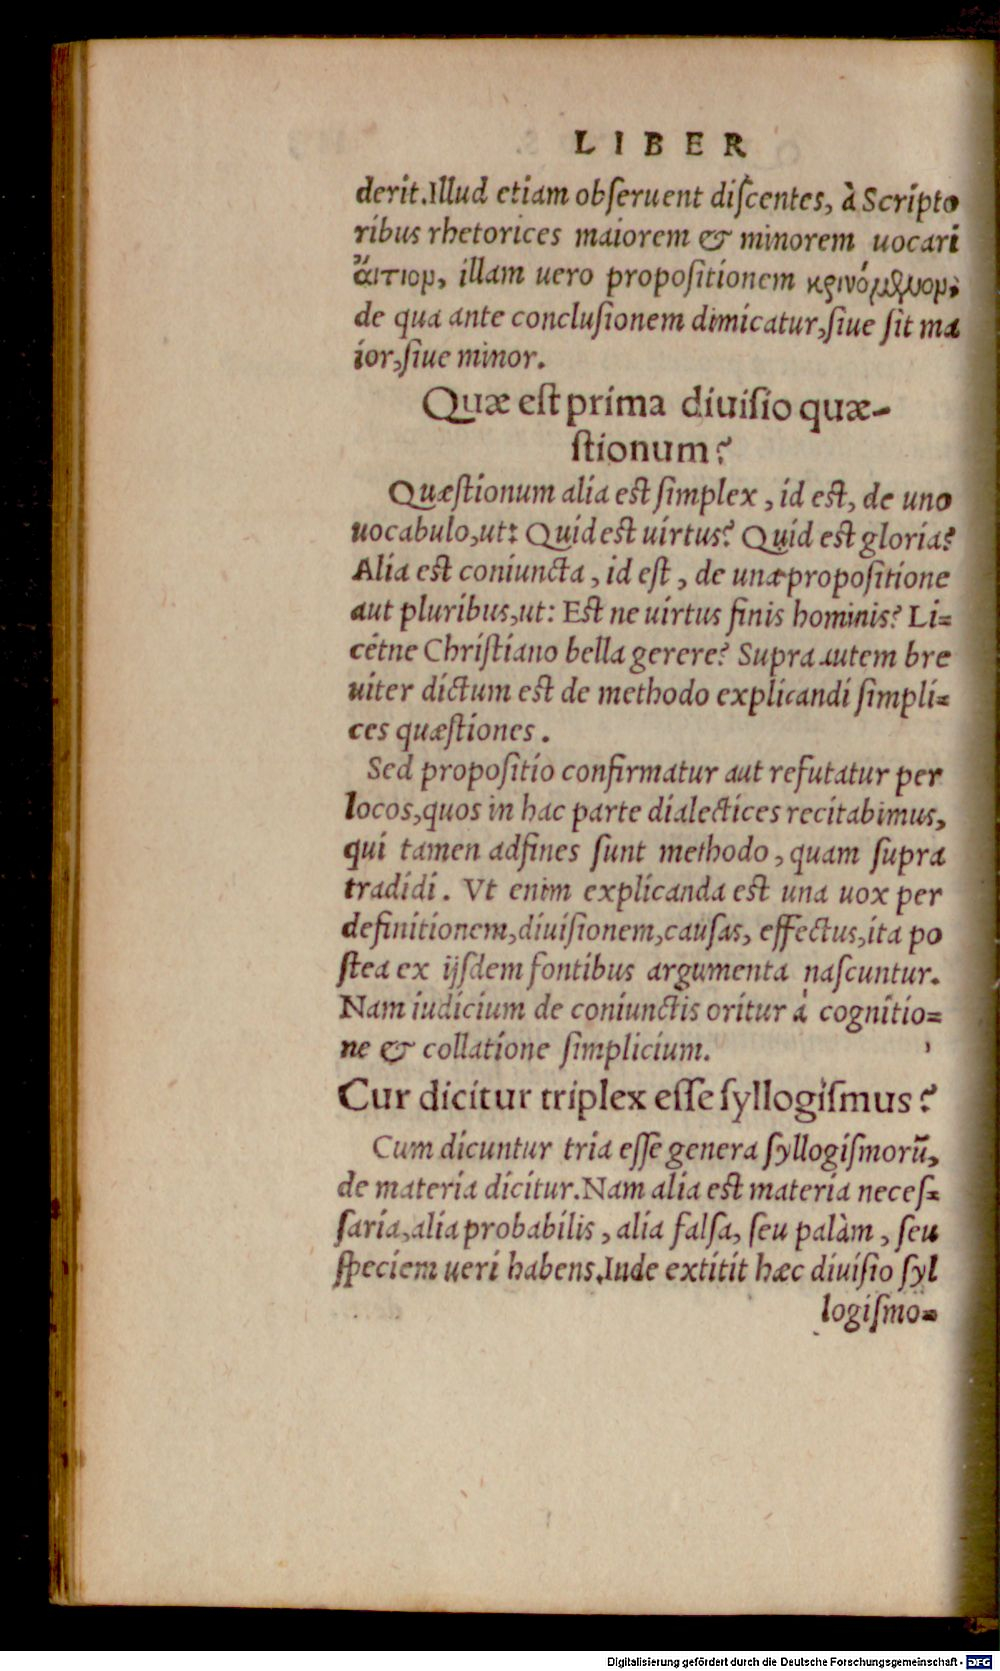 LIBER
derit. Illud etiam obſeruent diſcentes, à Scripto
ribus rhetorices maiorem & minorem uocari
ἄιτιον, illam uero propoſitionem κρινόμενον,
de qua ante concluſionem dimicatur, ſiue ſit ma
ior, ſiue minor.
Quæ eſt prima diuiſio quæ-
ſtionum?
Quæſtionum alia eſt ſimplex, id eſt, de uno
uocabulo, ut: Quid eſt uirtus? Quid eſt gloria?
Alia eſt coniuncta, id eſt, de una propoſitione
aut pluribus, ut: Eſt ne uirtus finis hominis? Li=
cétne Chriſtiano bella gerere? Supra autem bre
uiter dictum eſt de methodo explicandi ſimpli=
ces quæſtiones.
Sed propoſitio confirmatur aut refutatur per
locos, quos in hac parte dialectices recitabimus,
qui tamen adfines ſunt methodo, quam ſupra
tradidi. Vt enim explicanda eſt una uox per
definitionem, diuiſionem, cauſas, effectus, ita po
ſtea ex ijſdem fontibus argumenta naſcuntur.
Nam iudicium de coniunctis oritur à cognitio=
ne & collatione ſimplicium.
Cur dicitur triplex eſſe ſyllogiſmus?
Cum dicuntur tria eſſe genera ſyllogiſmorū,
de materia dicitur. Nam alia eſt materia neceſ=
ſaria, alia probabilis, alia falſa, ſeu palàm, ſeu
ſpeciem ueri habens. Inde extitit hæc diuiſio ſyl
logiſmo=
Digitalisierung gefördert durch die Deutsche Forschungsgemeinschaft - DFG